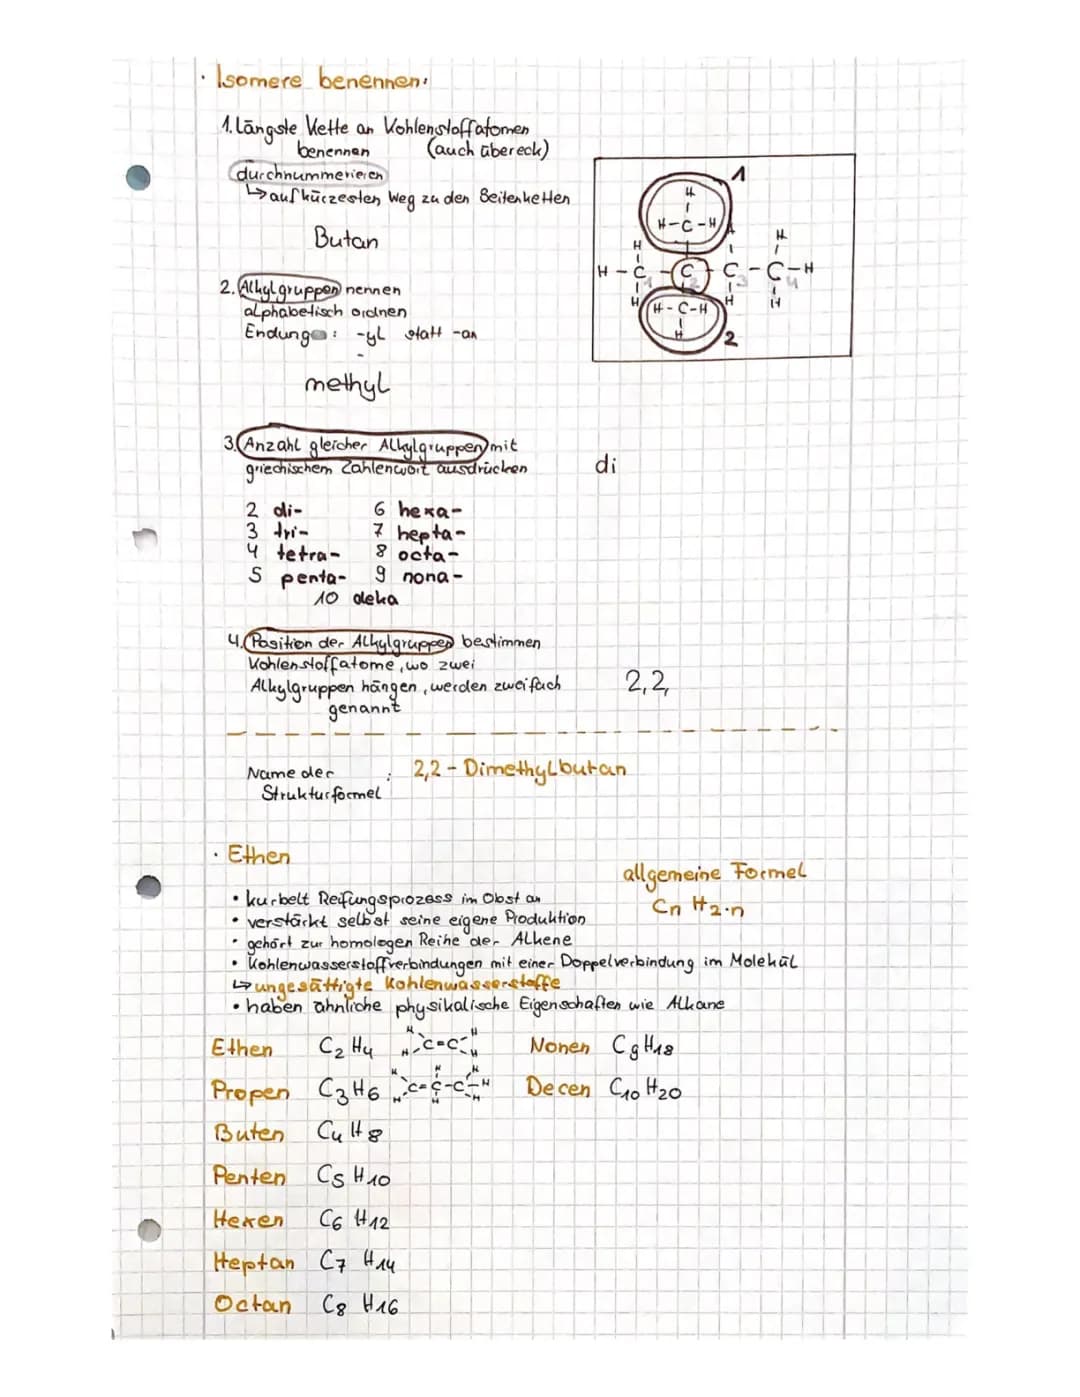 · Isomere benennen:
1. Längste Kette an Kohlenstoffatomen
benennen (auch übereck)
durchnummerieren
↳ auf kürzesten Weg zu den Seitenketten
Butan
2. Alkylgruppen nennen
alphabetisch ordnen
Endung : -yl statt -an
methyl
1
H
H-C-H
H H H
H-C-C-C-C-H
1 2 3 4
H H H
H-C-H
H
2
3. Anzahl gleicher Alkylgruppen mit
griechischem Zahlenwort ausdrücken
di
2 di- 6 hexa-
3 tri- 7 hepta-
4 tetra- 8 octa-
5 penta- 9 nona-
10 deka
4. Position der Alkylgruppen bestimmen
Kohlenstoffatome, wo zwei
Alkylgruppen hängen, werden zweifach
genannt
2,2,
Name der
Strukturformel : 2,2-Dimethylbutan
· Ethen
allgemeine Formel
Cn H2·n
• kurbelt Reifungsprozess im Obst an
• verstärkt selbst seine eigene Produktion
• gehört zur homologen Reihe der Alkene
• Kohlenwasserstoffverbindungen mit einer Doppelverbindung im Molekül
↳ ungesättigte Kohlenwasserstoffe
• haben ähnliche physikalische Eigenschaften wie Alkane
Ethen C2 H4 H H C=C H H Nonen C9 H18
Propen C3 H6 H H C=C-C-H H H H H Decen C10 H20
Buten C4 H8
Penten C5 H10
Hexen C6 H12
Heptan C7 H14
Octan C8 H16